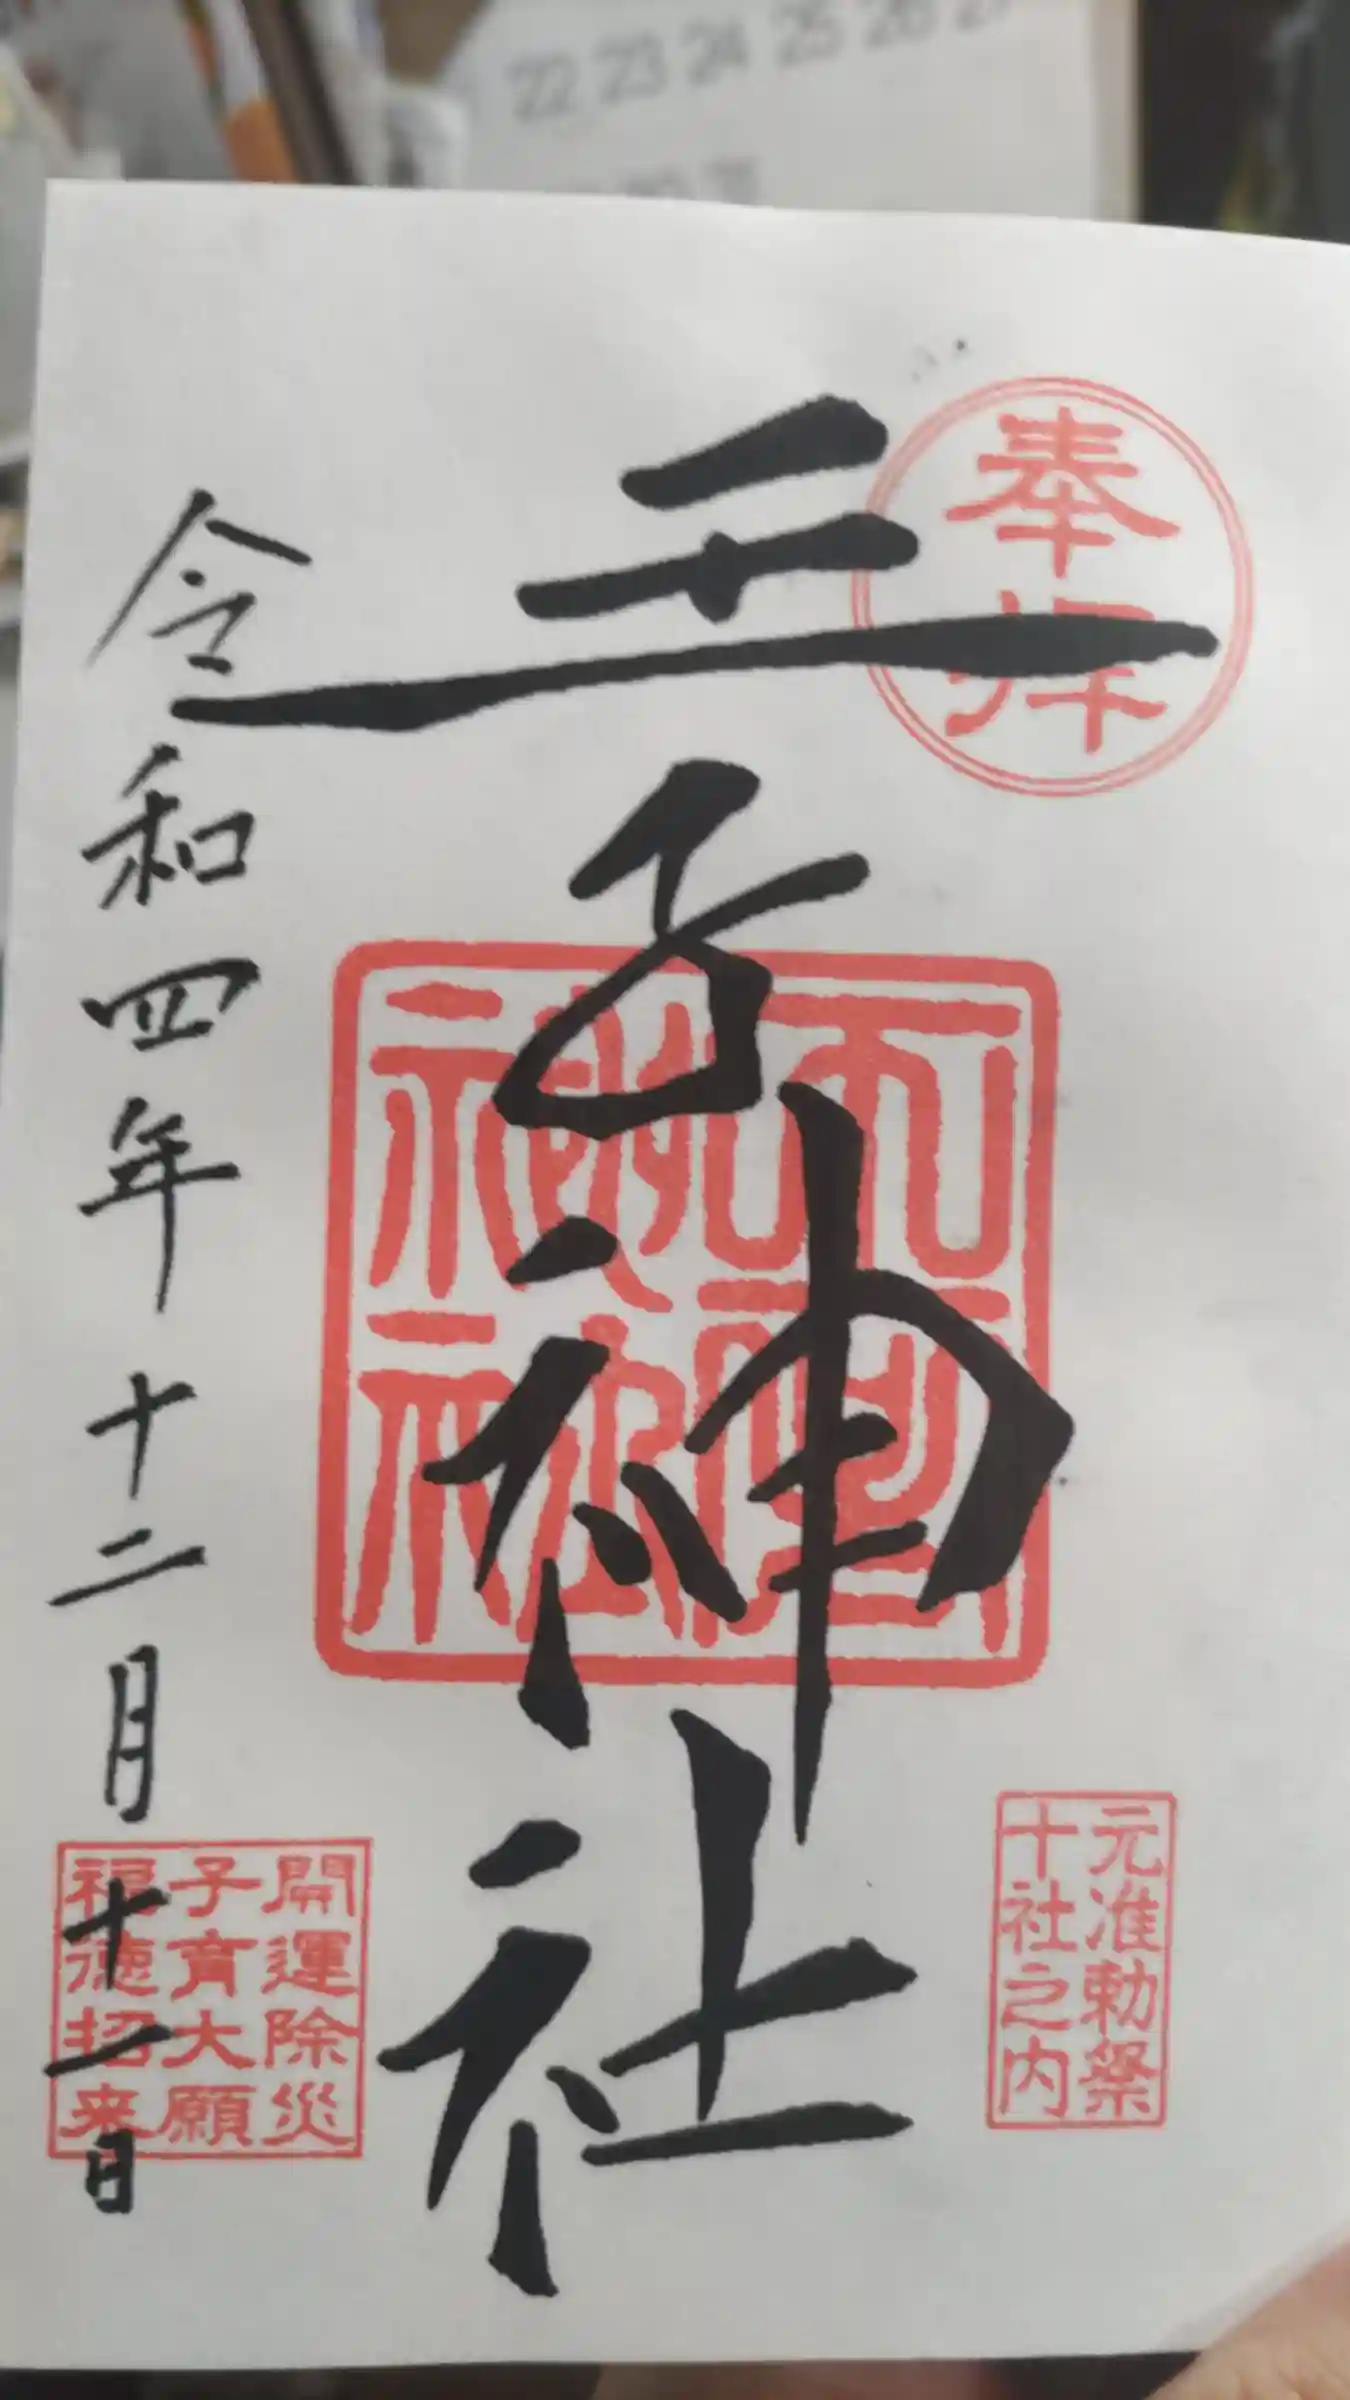 22 23 24 25 26 27
奉拝
元准勅祭
十社之内
王子神社
開運除災
子育大願
福徳招来
令和四年十二月十一日